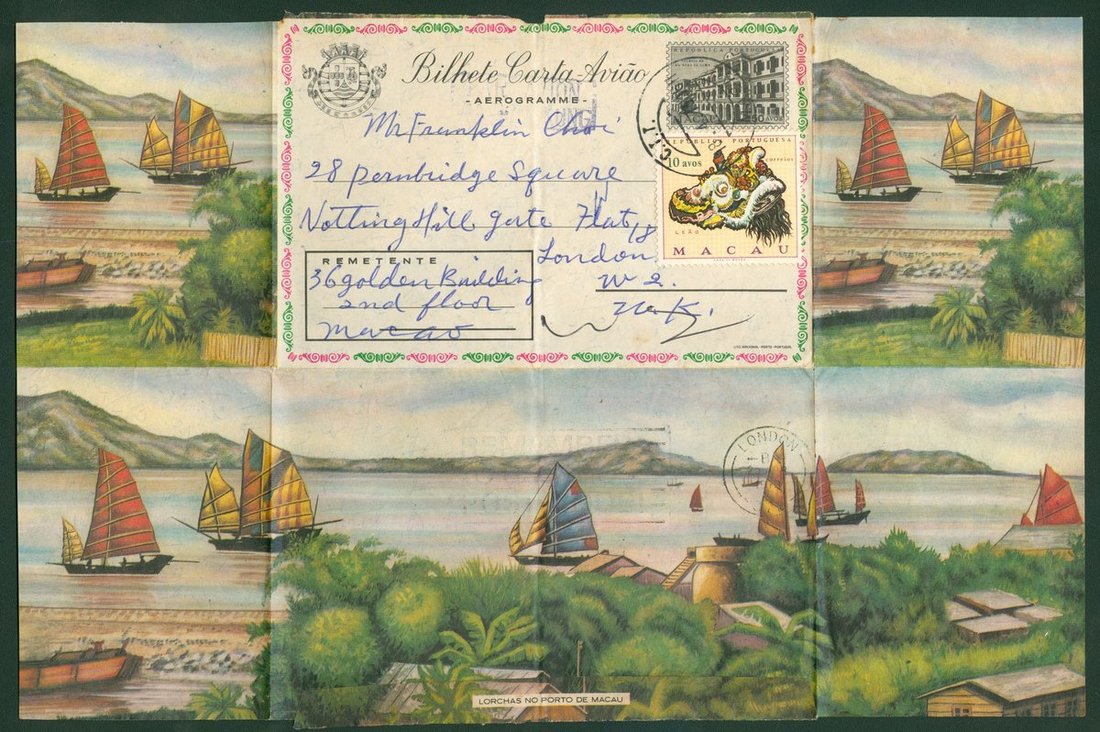 Bilhete Carta-Avião
- AEROGRAMME -
REPÚBLICA PORTUGUESA
MACAU
C.T.T.
REPÚBLICA PORTUGUESA
10 avos
correios
LEÃO
MACAU
Mr Franklin Choi
28 Pembridge Square
Notting Hill gate Flat 18
London
W 2.
U.K.
REMETENTE
36 golden Building
2nd floor
Macao
LITO NACIONAL - PORTO - PORTUGAL
LONDON
LORCHAS NO PORTO DE MACAU